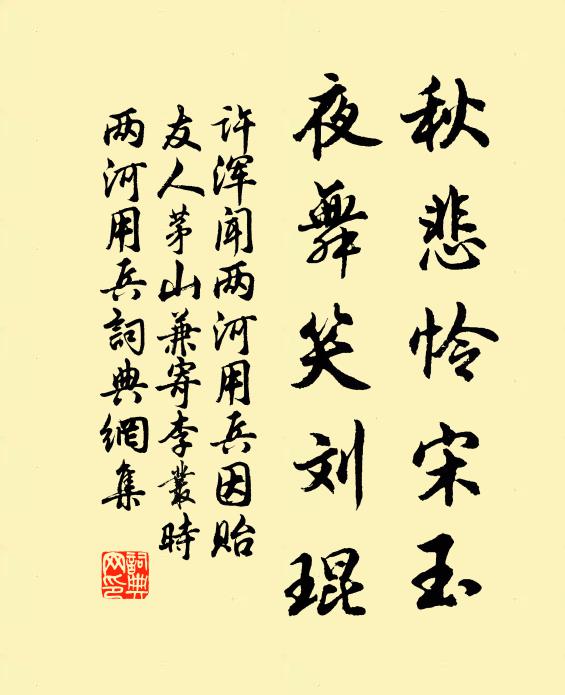 秋悲怜宋玉
夜舞笑刘琨
许浑闻两河用兵因贻
友人茅山兼寄李叢時
两河用兵詞典網集
詞典網印